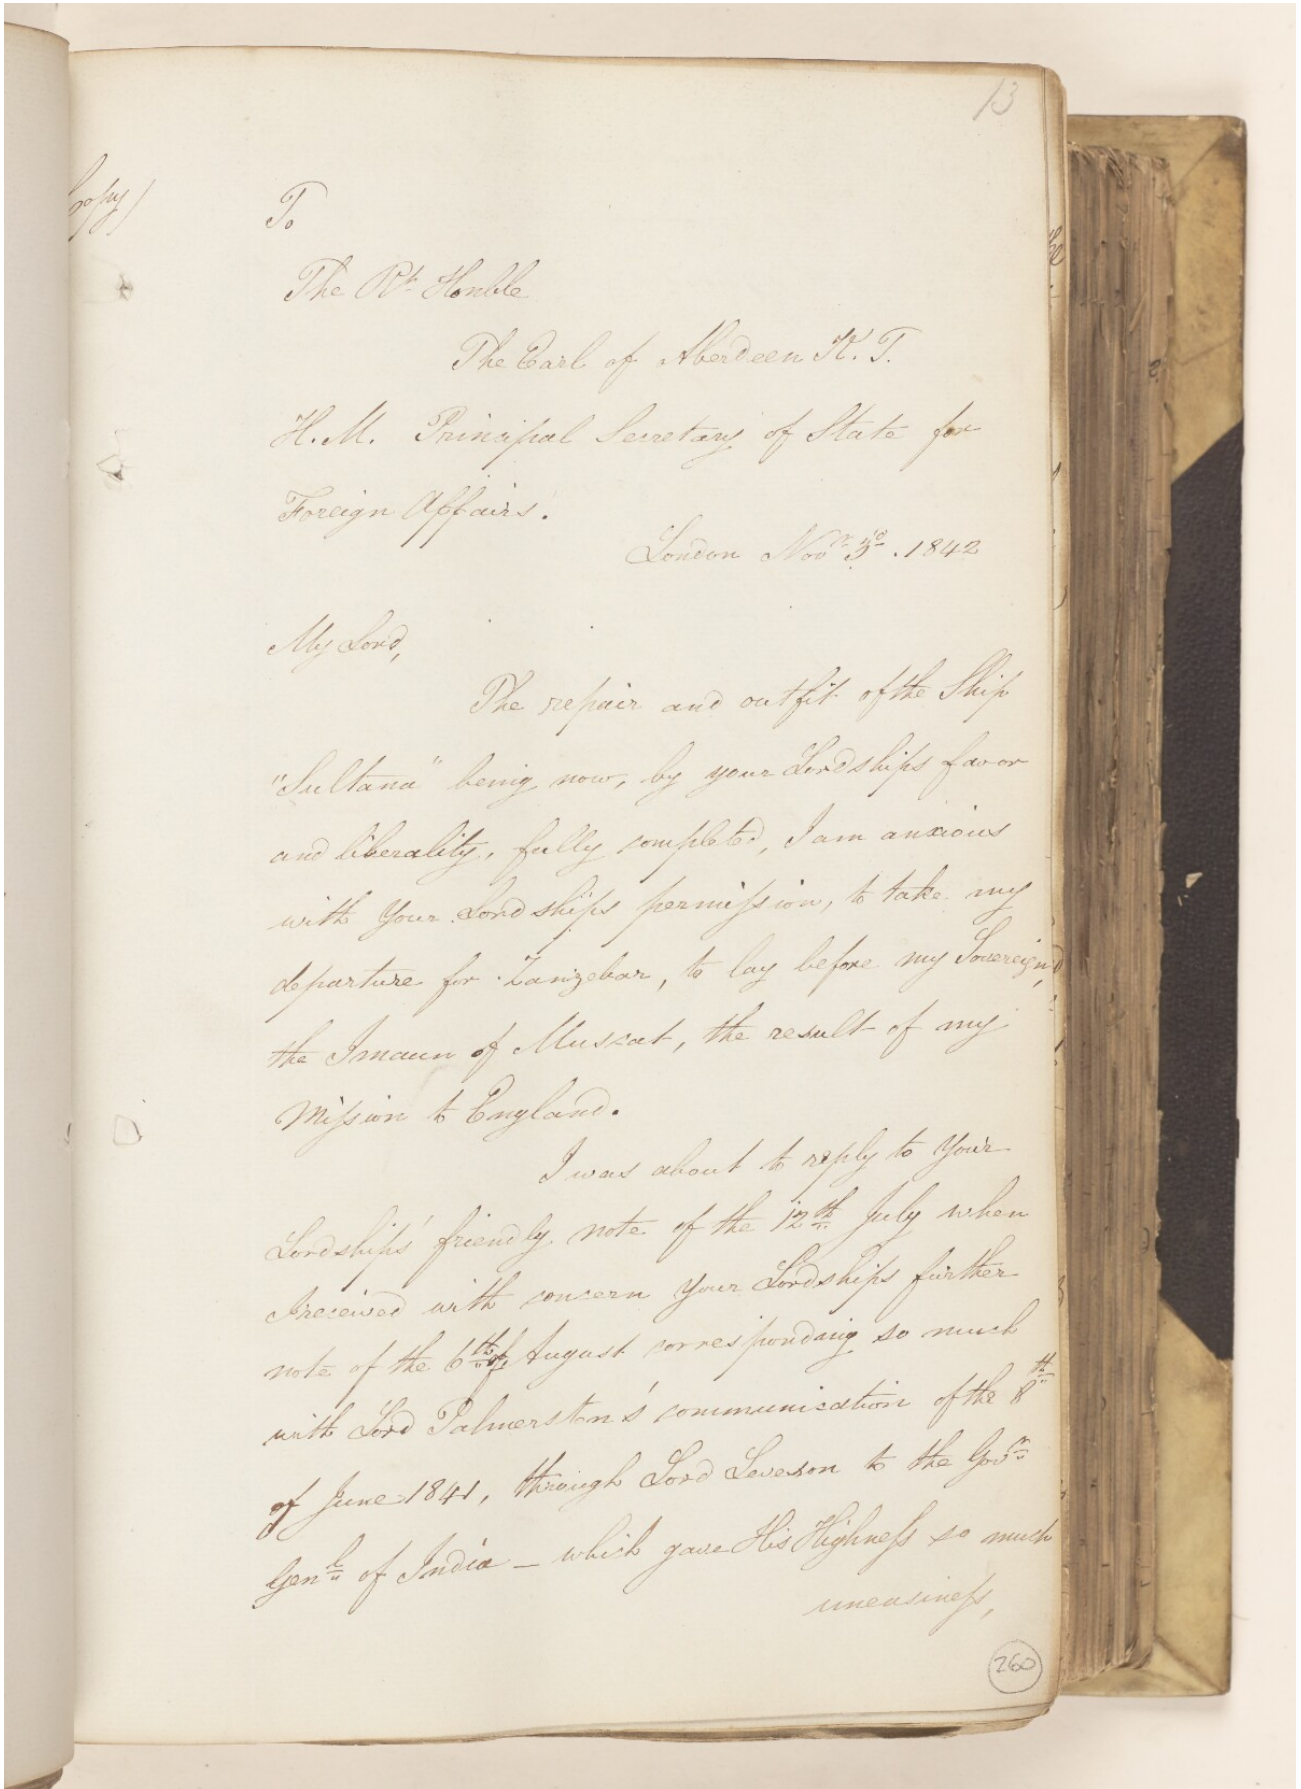 13
Copy)
To
The Rt. Honble
The Earl of Aberdeen K. T.
H. M. Principal Secretary of State for
Foreign Affairs.
London Novr. 3d. 1842
My Lord,
The repair and outfit of the Ship
"Sultana" being now, by your Lordships favor
and liberality, fully completed, I am anxious
with Your Lordships permission, to take my
departure for Zanzebar, to lay before my Sovereign,
the Imaun of Muscat, the result of my
Mission to England.
I was about to reply to Your
Lordships' friendly note of the 12th July when
I received with concern Your Lordships further
note of the 6th of August corresponding so much
with Lord Palmerston's communication of the 8th
of June 1841, through Lord Leveson to the Govr.
Genl. of India — which gave His Highness so much
uneasiness,
260